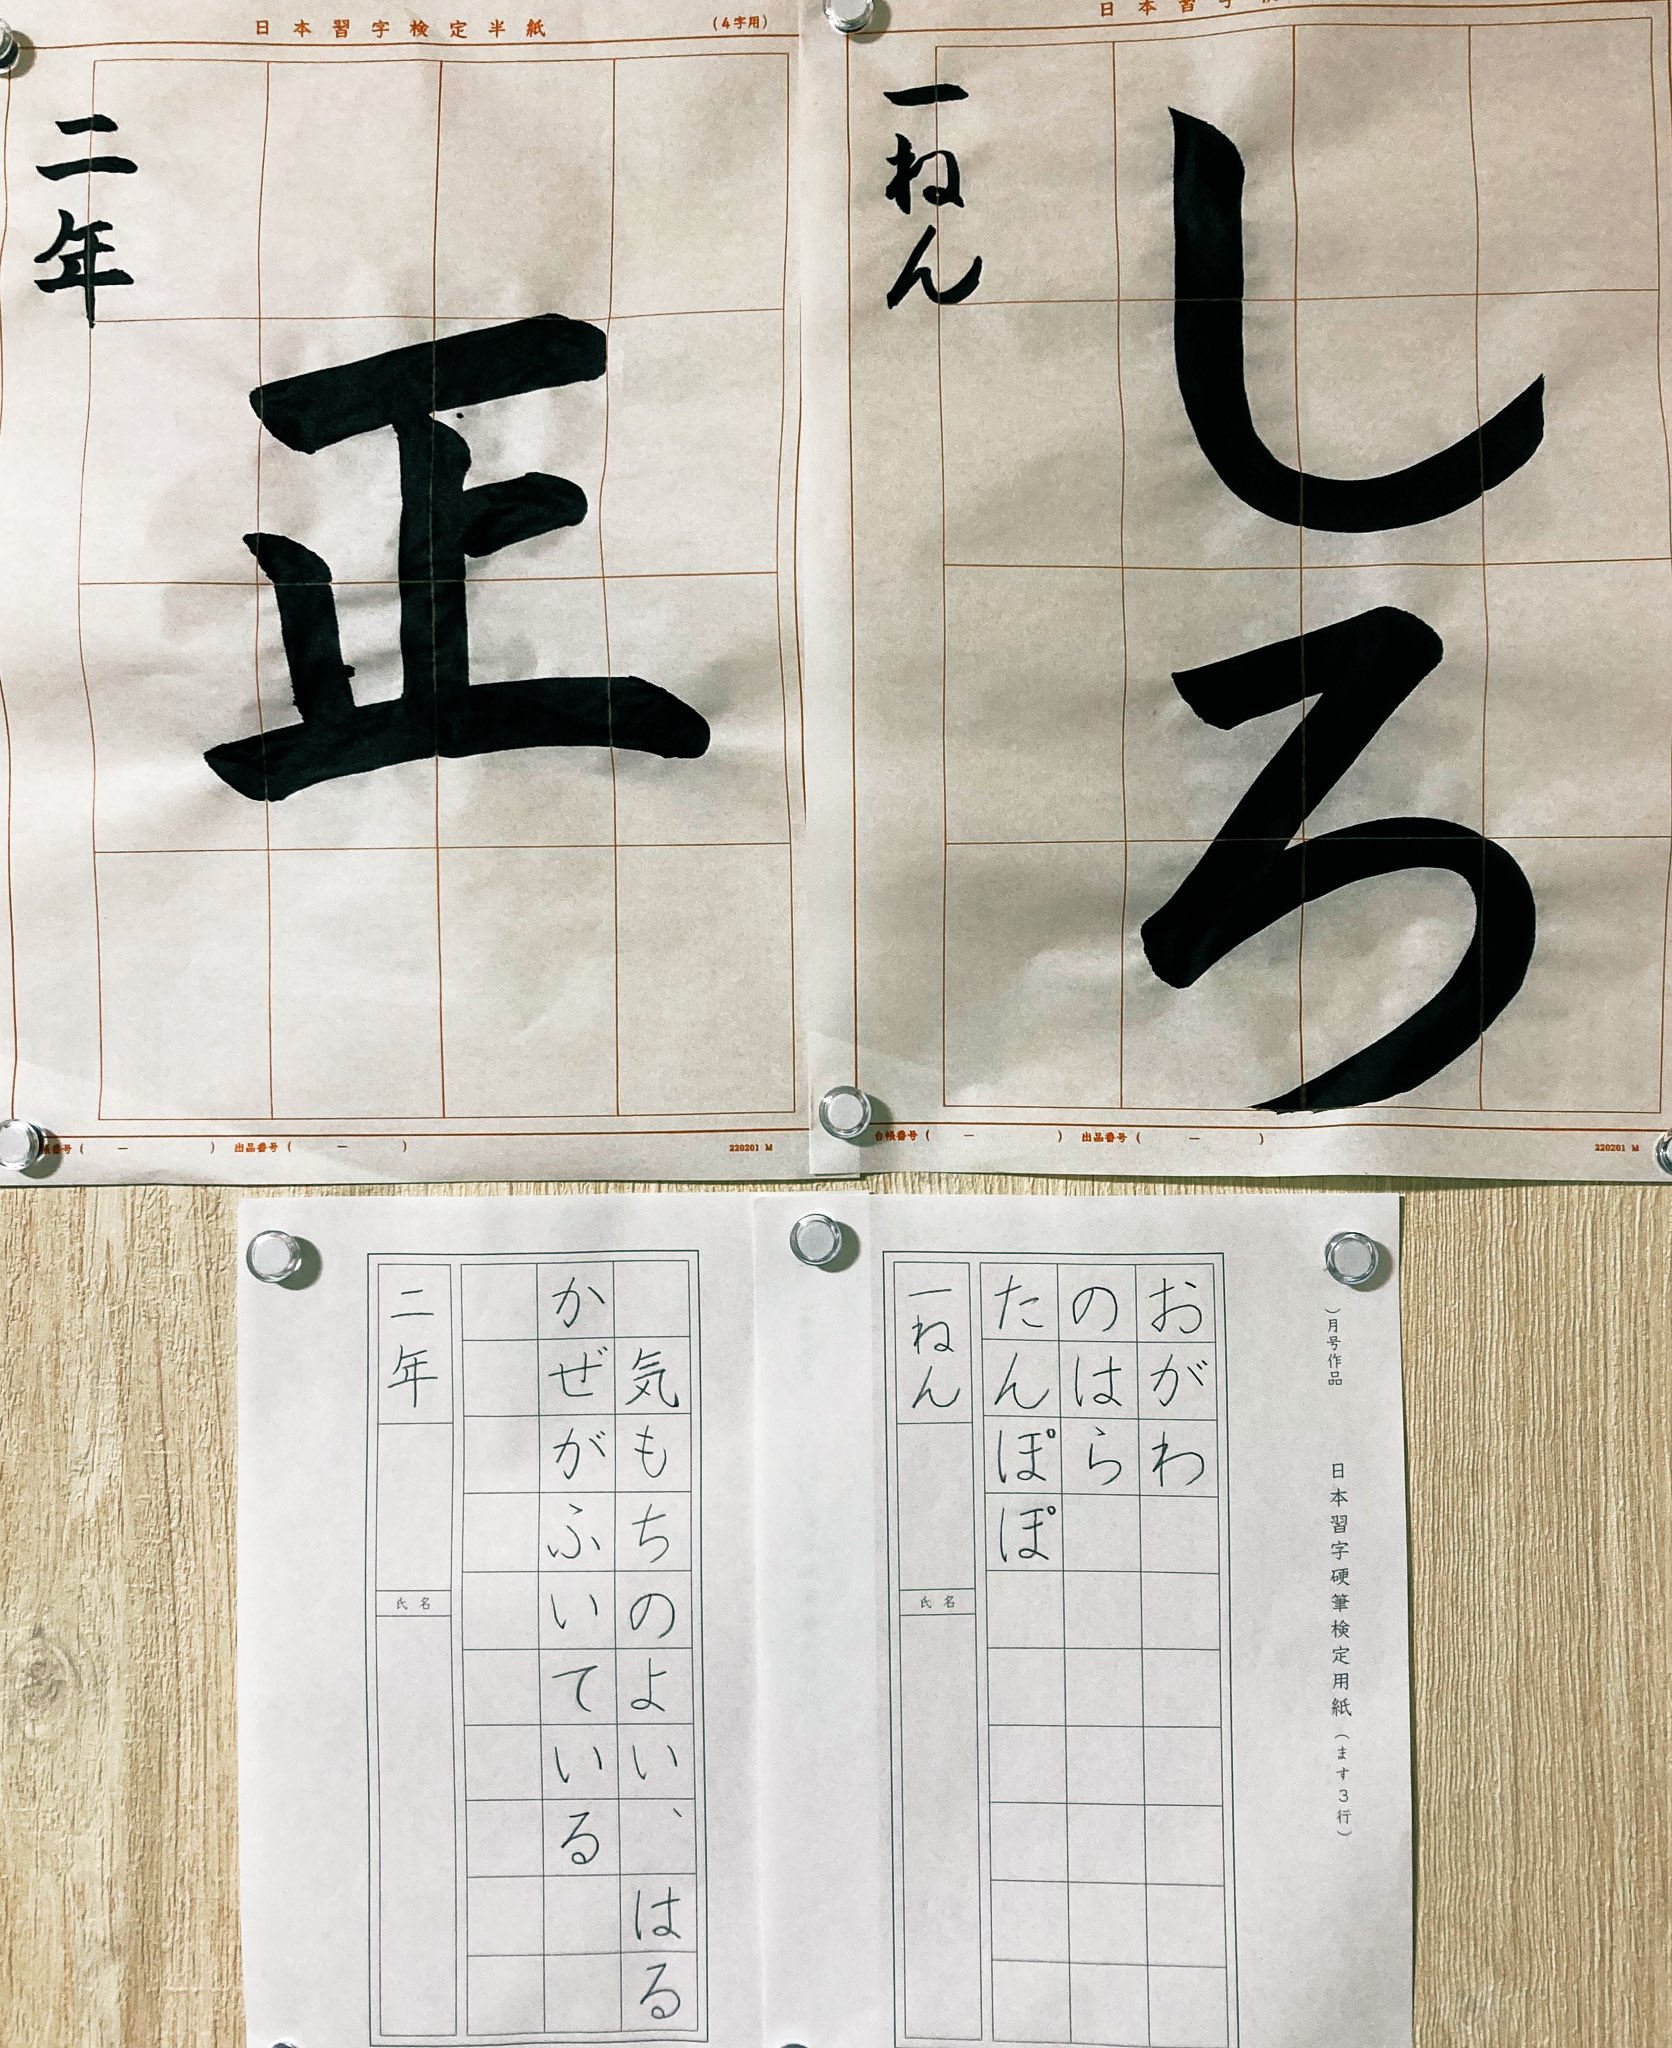 日本習字検定半紙
(4字用)
正
二年
帳番号 ( — ) 出品番号 ( — )
220201 M
日本習字
しろ
一ねん
台帳番号 ( — ) 出品番号 ( — )
220201 M
気もちのよい、はる
かぜがふいている
二年
氏名
)月号作品
日本習字硬筆検定用紙(ます3行)
おがわ
のはら
たんぽぽ
一ねん
氏名